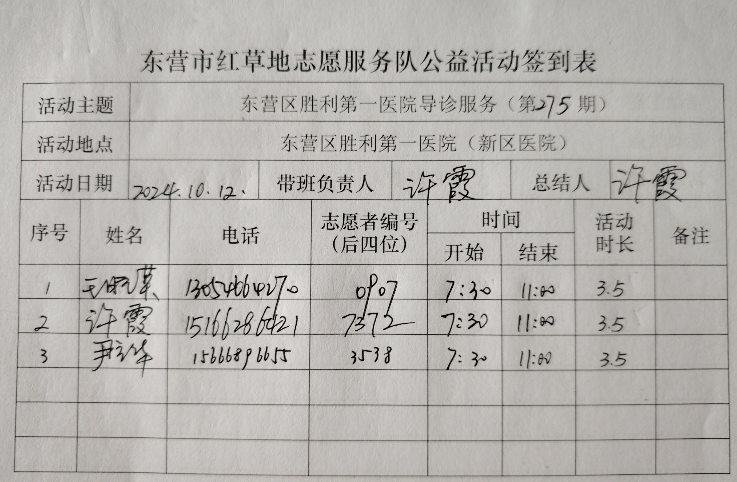 东营市红草地志愿服务队公益活动签到表
活动主题 东营区胜利第一医院导诊服务（第275期）
活动地点 东营区胜利第一医院（新区医院）
活动日期 2024.10.12. 带班负责人 许霞 总结人 许霞
序号 姓名 电话 志愿者编号（后四位） 时间 开始 结束 活动时长 备注
1 13054664270 0907 7:30 11:00 3.5
2 许霞 15166286421 7372 7:30 11:00 3.5
3 15666896655 3538 7:30 11:00 3.5